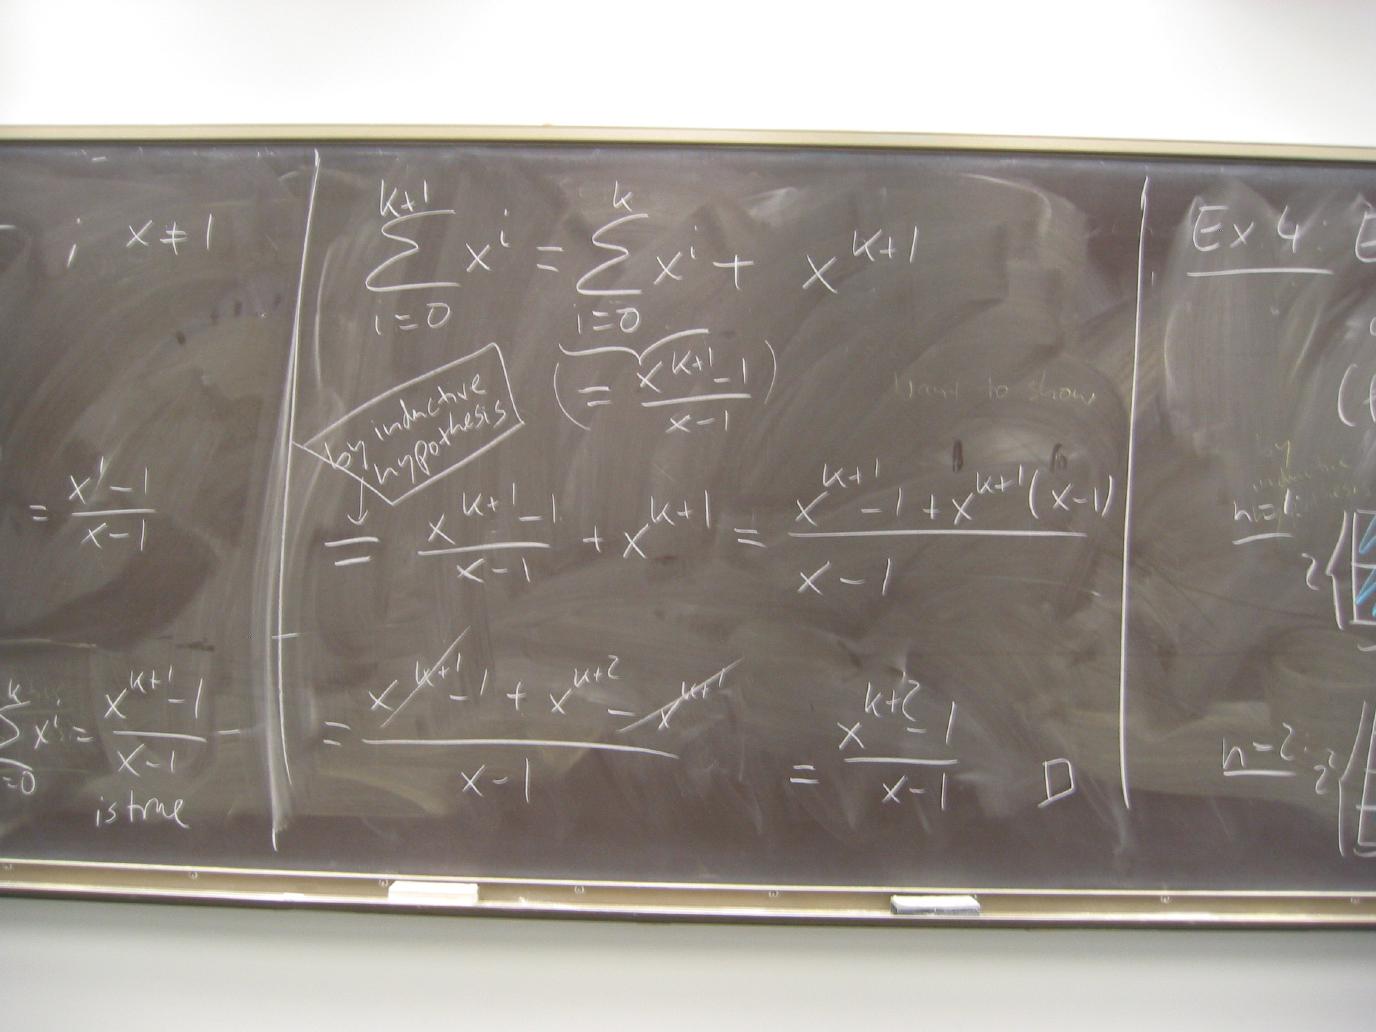 ; x ≠ 1
= x¹ - 1 / x - 1
k
∑ xⁱ = x^(k+1) - 1 / x - 1
=0
is true
k+1 k
∑ xⁱ = ∑ xⁱ + x^(k+1)
i=0 i=0
( = x^(k+1) - 1 / x - 1 )
by inductive
hypothesis
want to show
= x^(k+1) - 1 / x - 1 + x^(k+1) = x^(k+1) - 1 + x^(k+1) (x - 1) / x - 1
= x^(k+1) - 1 + x^(k+2) - x^(k+1) / x - 1 = x^(k+2) - 1 / x - 1 □
Ex 4: E
by
inductive
n=1:
2
n=2:
2